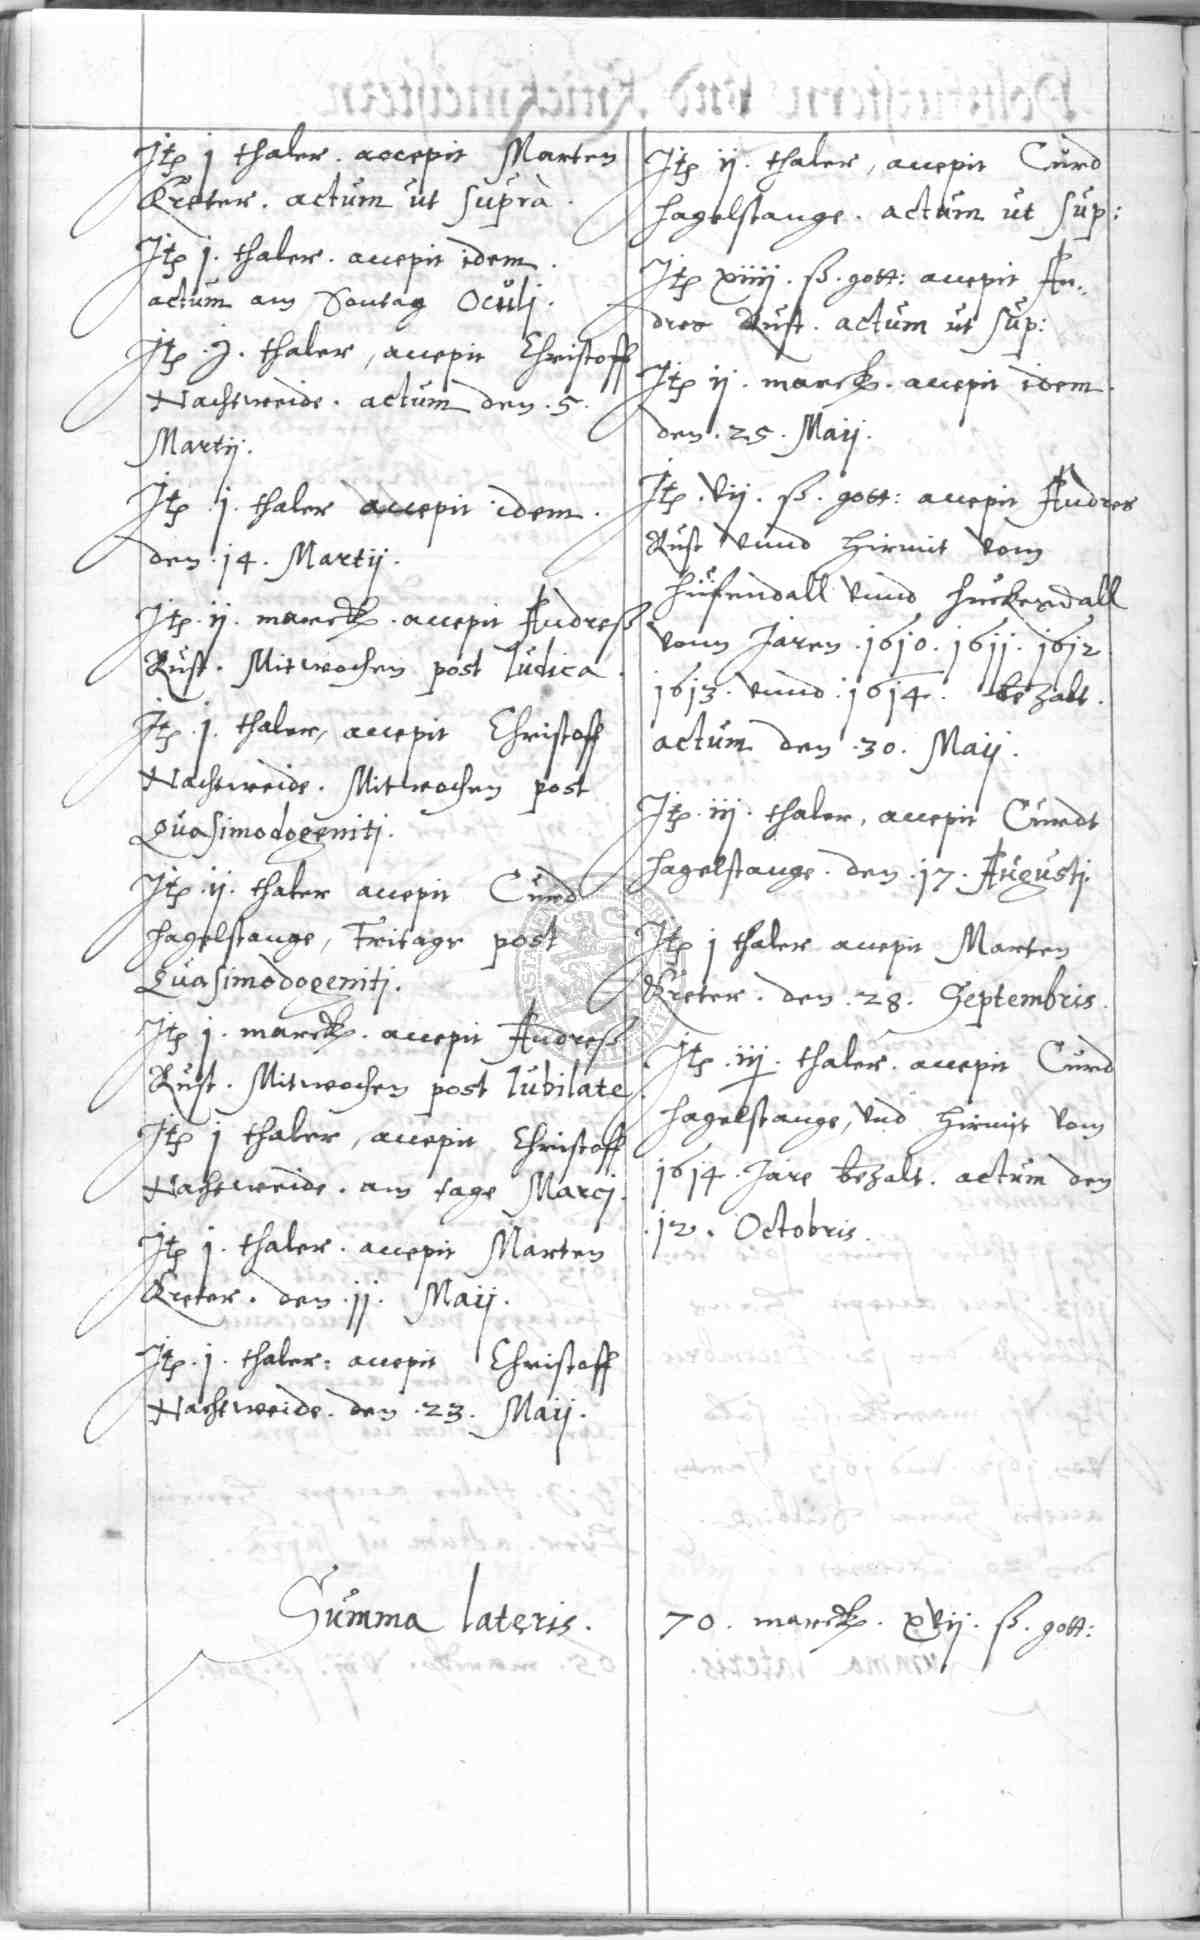 Itp j thaler. accepit Marten
Kreter. actum ut supra.
Itp j. thaler. accepit idem.
actum am Sontag Oculj.
Itp .j. thaler, accepit Christoff
Nachtweide. actum den .5.
Martij.
Itp .j. thaler accepit idem.
den .14. Martij.
Itp .ij. marck. accepit Andreß
Rust. Mitwochen post Iudica.
Itp .j. thaler, accepit Christoff
Nachtweide. Mitwochen post
Quasimodogenitj.
Itp .ij. thaler accepit Curd
Hagelstange, Fritags post
Quasimodogenitj.
Itp j. marck. accepit Andreß
Rust. Mitwochen post Iubilate.
Itp j thaler, accepit Christoff
Nachtweide. am tage Marcj.
Itp j. thaler. accepit Marten
Kreter. den .11. Maij.
Itp .j. thaler. accepit Christoff
Nachtweide. den .23. Maij.
Itp ij. thaler, accepit Curd
Hagelstange. actum ut sup:
Itp xiiij. ß. gott: accepit An-
dres Rust. actum ut sup:
Itp ij. marck. accepit idem.
den .25. Maij.
Itp .vij. ß. gott: accepit Andres
Rust vnnd hirmit vom
Hüfendall vnnd Huckerdall
vonn Jaren .1610. 1611. 1612.
1613. vnnd .1614. bezalt.
actum den .30. Maij.
Itp .iij. thaler, accepit Curdt
Hagelstange. den .17. Augustj.
Itp j thaler accepit Marten
Kreter. den .28. Septembris.
Itp .iij. thaler. accepit Curd
Hagelstange, vnd hirmit vom
1614. Jare bezalt. actum den
.12. Octobris.
Summa lateris. 70. marck. xvij. ß. gott: